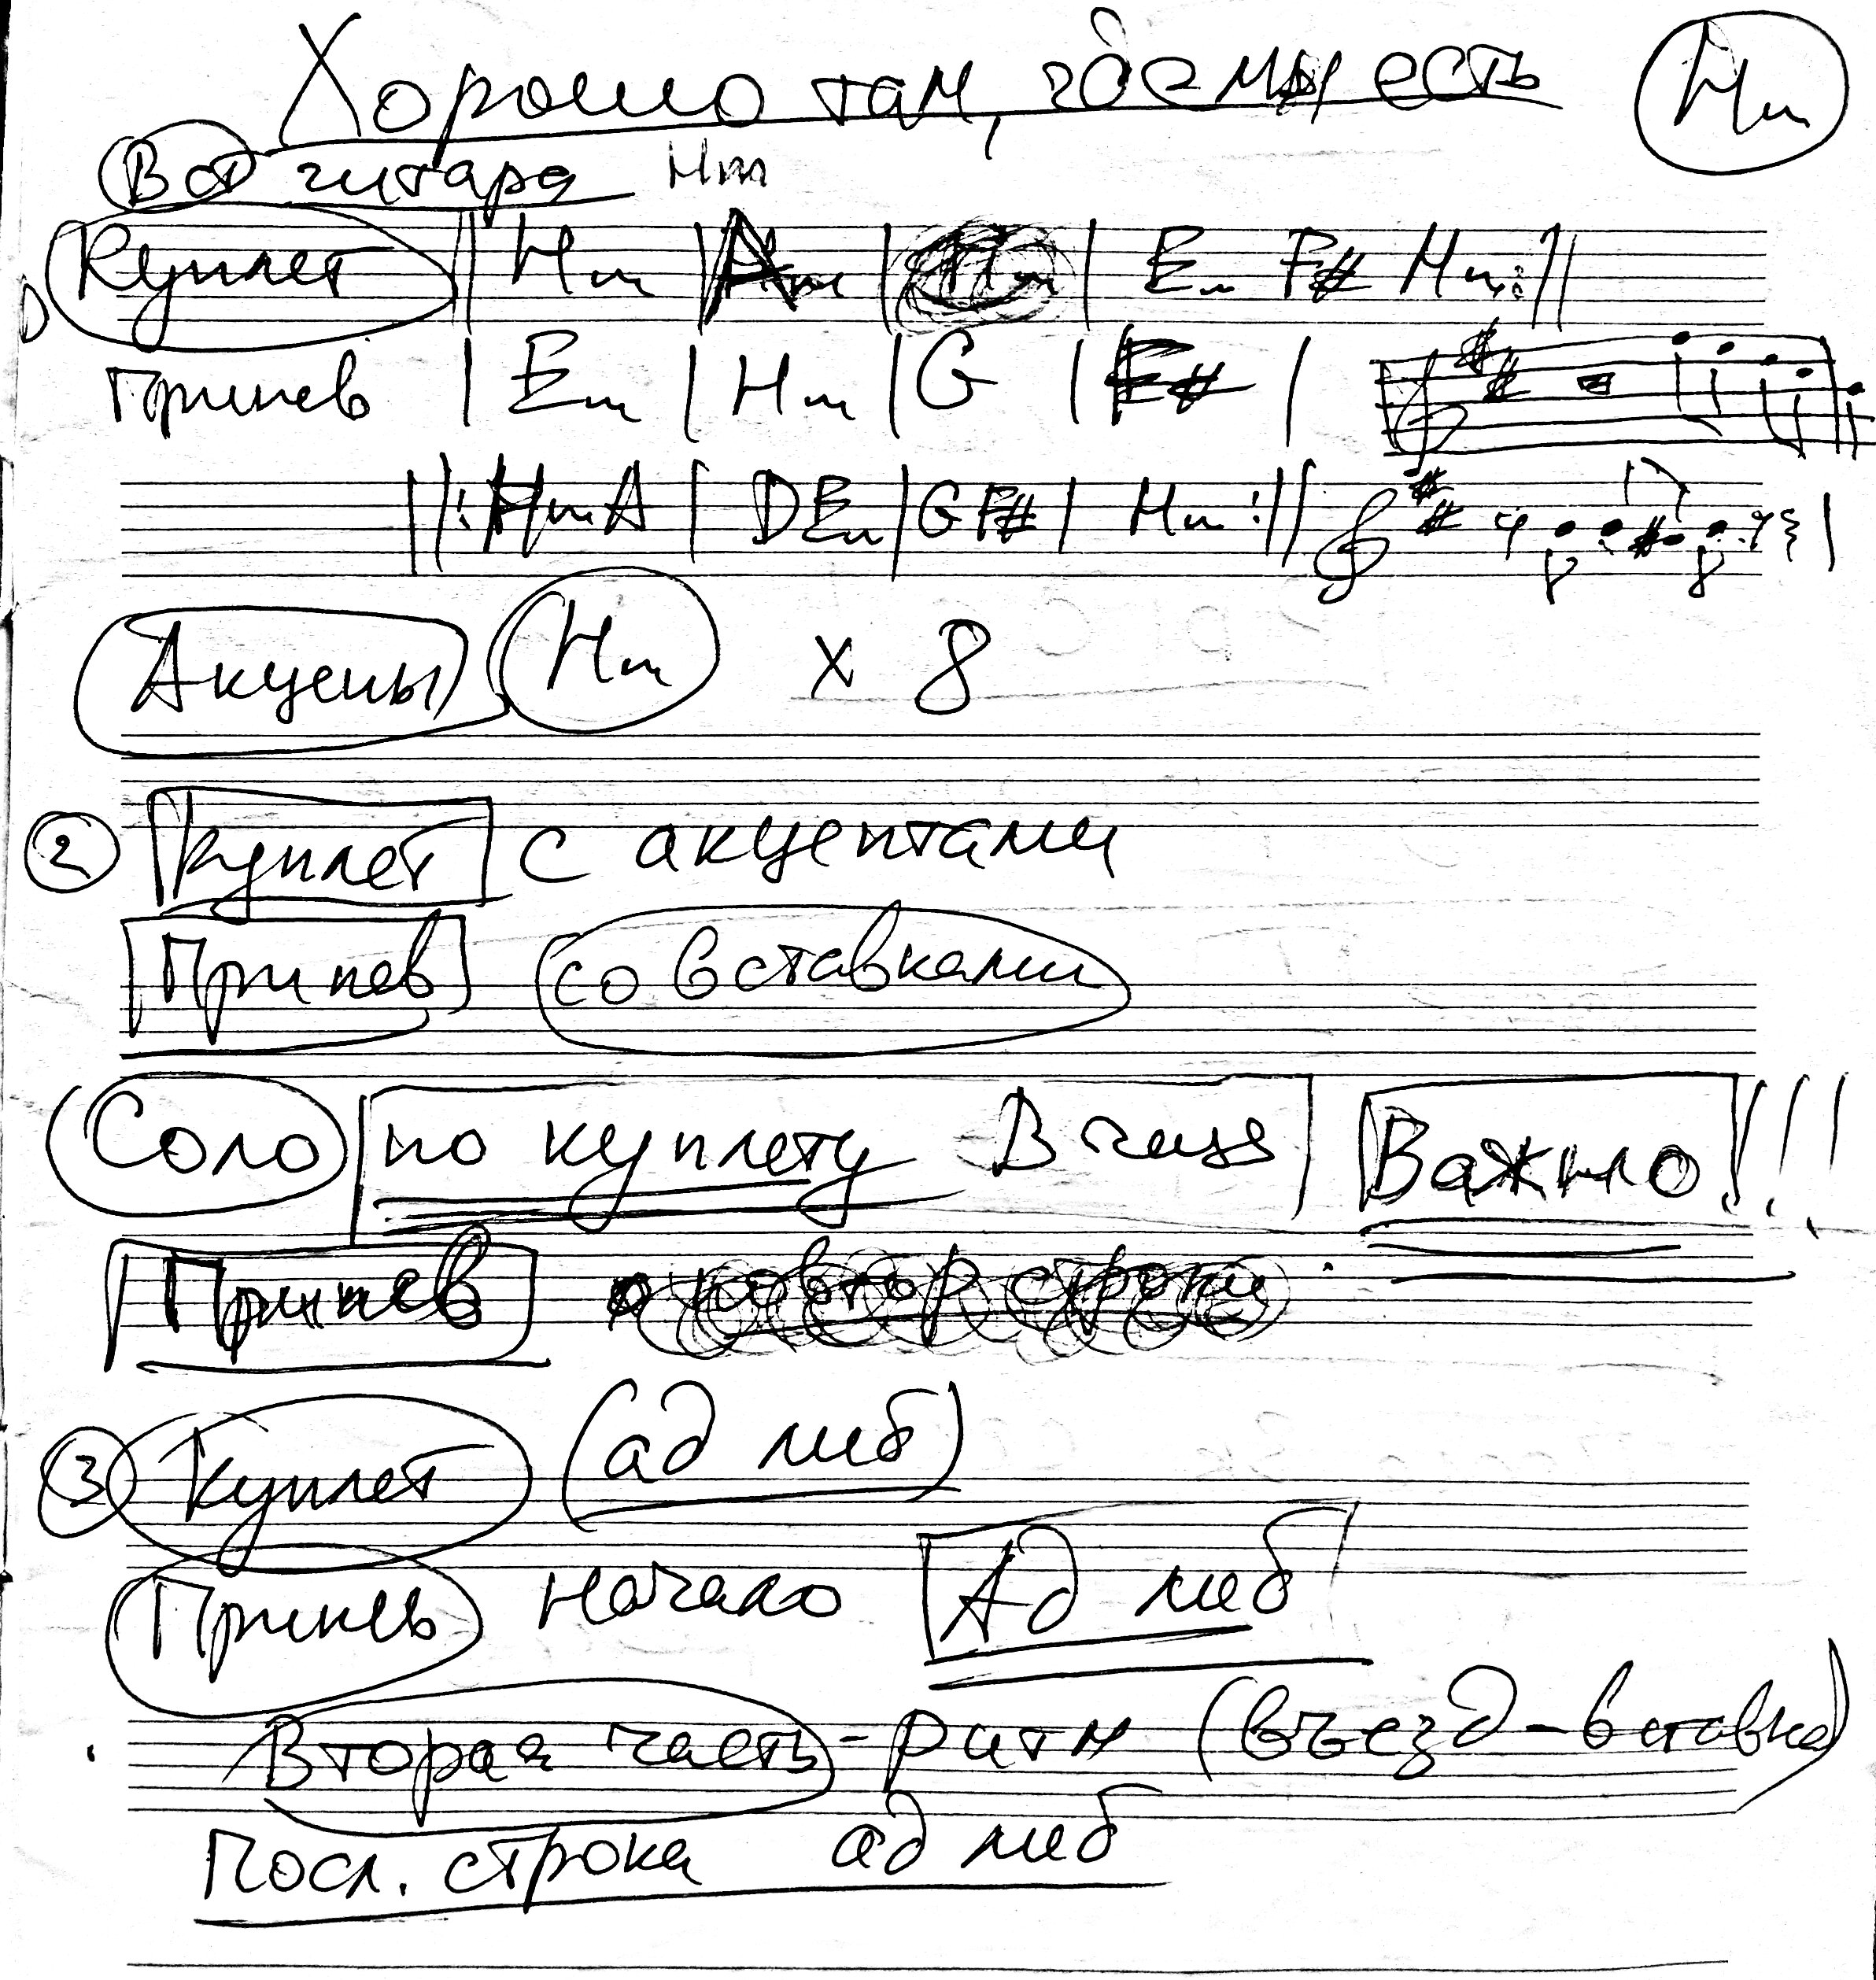 Хорошо там, где мы есть Hm
Вст гитара Hm
Куплет || Hm | | | Em F# Hm :||
Припев | Em | Hm | G | F# |
||: Hm A | D Em | G F# | Hm :||
Акцены Hm x 8
2 Куплет с акцентами
Припев со вставками
Соло по куплету Важно!!!
Припев повтор строки
3 Куплет (ад либ)
Припев начало Ад либ
Вторая часть - ритм (въезд - вставка)
Посл. строка ад либ